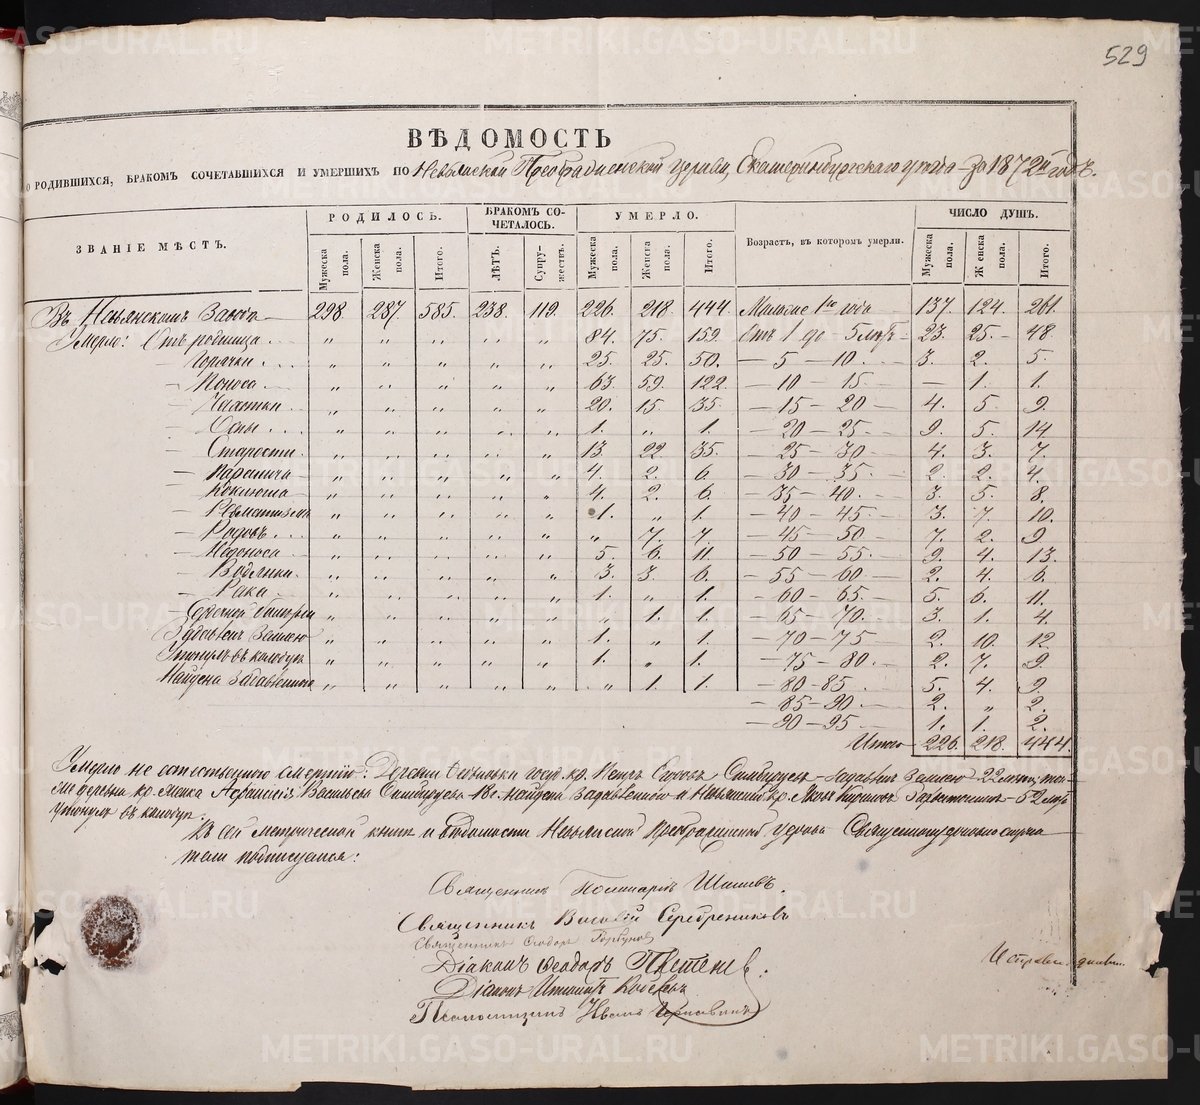 529
ВѢДОМОСТЬ
О РОДИВШИХСЯ, БРАКОМЪ СОЧЕТАВШИХСЯ И УМЕРШИХЪ ПО Невьянской Преображенской Церкви, Екатеринбургскаго уѣзда за 1872й годъ.
ЗВАНІЕ МѢСТЪ. РОДИЛОСЬ. БРАКОМЪ СОЧЕТАЛОСЬ. УМЕРЛО. Возрастъ, въ которомъ умерли. ЧИСЛО ДУШЪ.
Мужеска пола. Женска пола. Итого. ЛѢТЪ. Супружествъ. Мужеска пола. Женска пола. Итого. Мужеска пола. Женска пола. Итого.
Въ Невьянскомъ Заводѣ 298 287. 585. 238. 119. 226. 218. 444. Моложе 1го года 137. 124. 261.
Умерло: Отъ родимца „ „ „ „ „ 84. 75. 159. Отъ 1 до 5 лѣтъ 23. 25. 48.
— Горячки „ „ „ „ „ 25. 25. 50. — 5 — 10 — 3. 2. 5.
— Поноса „ „ „ „ „ 63. 59. 122. — 10 — 15 — — 1. 1.
— Чахотки „ „ „ „ „ 20. 15. 35. — 15 — 20 — 4. 5. 9.
— Оспы „ „ „ „ „ 1. „ 1. — 20 — 25 — 9. 5. 14.
— Старости „ „ „ „ „ 13. 22. 35. — 25 — 30 — 4. 3. 7.
— Паралича „ „ „ „ „ 4. 2. 6. — 30 — 35 — 2. 2. 4.
— Коклюша „ „ „ „ „ 4. 2. 6. — 35 — 40 — 3. 5. 8.
— Ревматизмъ „ „ „ „ „ 1. „ 1. — 40 — 45 — 3. 7. 10.
— Родовъ „ „ „ „ „ „ 7. 7. — 45 — 50 — 7. 2. 9.
— Недоноса „ „ „ „ „ 5. 6. 11. — 50 — 55 — 9. 4. 13.
— Водянки „ „ „ „ „ 3. 3. 6. — 55 — 60 — 2. 4. 6.
— Рака „ „ „ „ „ 1. „ 1. — 60 — 65 — 5. 6. 11.
„ „ „ „ „ „ 1. 1. — 65 — 70 — 3. 1. 4.
Задавленъ Землею „ „ „ „ „ 1. „ 1. — 70 — 75 2. 10. 12
Утонулъ въ колодцѣ „ „ „ „ „ 1. „ 1. — 75 — 80 — 2. 7. 9.
Найдена Задавленною „ „ „ „ „ „ 1. 1. — 80 — 85 — 5. 4. 9.
— 85 — 90 — 2. „ 2.
— 90 — 95 1. 1. 2.
Итого 226. 218. 444.
Умерло не естественною смертію: Деревни кр. Петръ Задавленъ Землею 22 лѣтъ, той
деревни кр. Васильева найдена Задавленною и Невьянскій кр. Яковъ Кириловъ 52 лѣтъ
утонулъ въ колодцѣ.
Къ сей метрической книгѣ и вѣдомости Невьянской Преображенской Церкви Священноцерковнослужи-
тели подписуемся:
Священникъ
Священникъ Василій Серебрениковъ
Священникъ Ѳеодоръ Горбуновъ
Діаконъ Ѳеодоръ
Діаконъ
Псаломщикъ Иванъ
METRIKI.GASO-URAL.RU